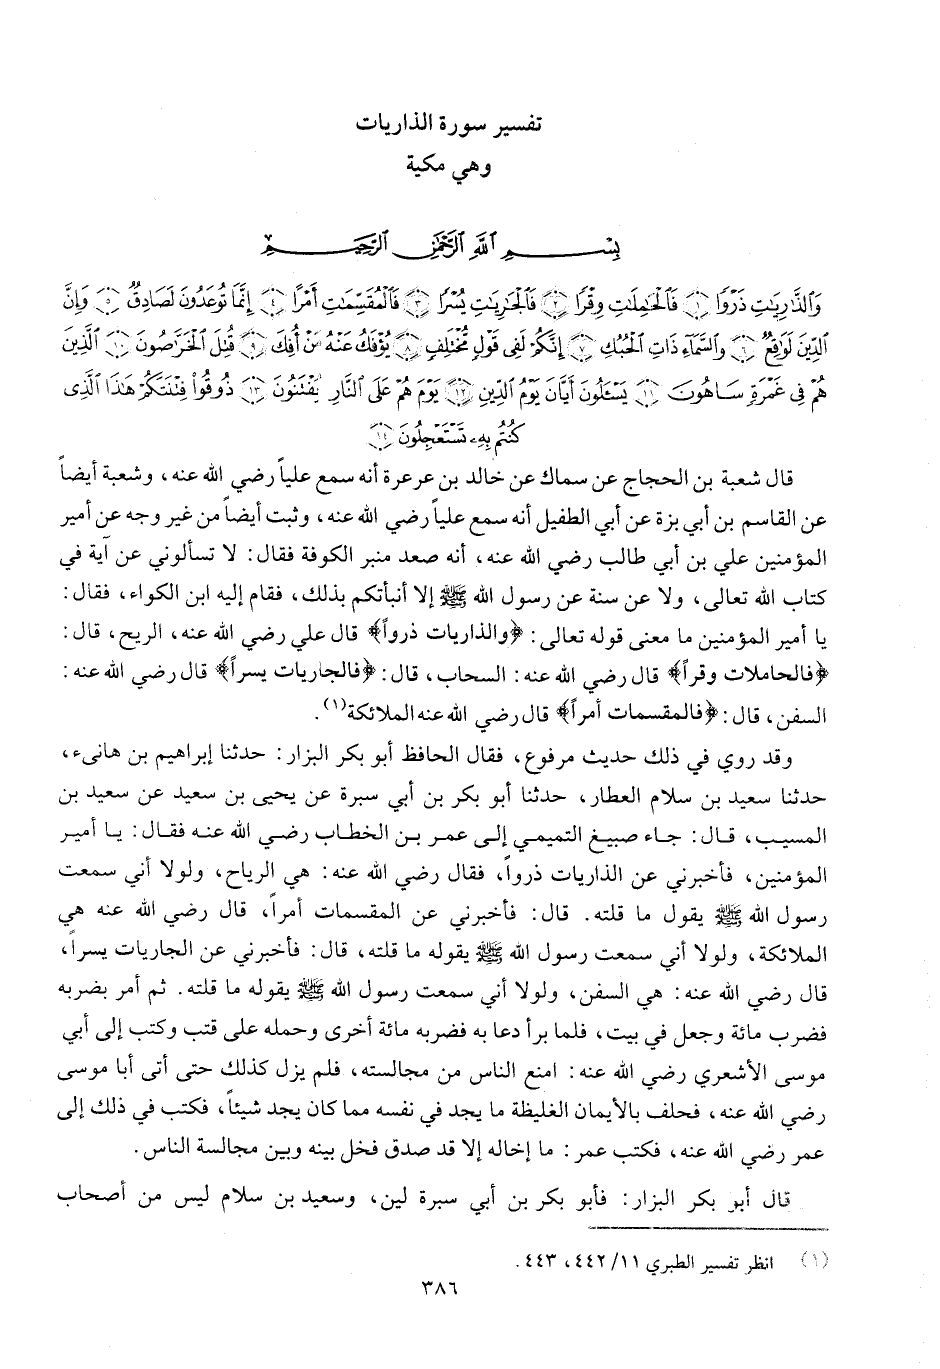 تفسير سورة الذاريات
وهي مكية
بِسْمِ ٱللَّهِ ٱلرَّحْمَٰنِ ٱلرَّحِيمِ
وَٱلذَّٰرِيَٰتِ ذَرْوًا ۝١ فَٱلْحَٰمِلَٰتِ وِقْرًا ۝٢ فَٱلْجَٰرِيَٰتِ يُسْرًا ۝٣ فَٱلْمُقَسِّمَٰتِ أَمْرًا ۝٤ إِنَّمَا تُوعَدُونَ لَصَادِقٌ ۝٥ وَإِنَّ
ٱلدِّينَ لَوَٰقِعٌ ۝٦ وَٱلسَّمَآءِ ذَاتِ ٱلْحُبُكِ ۝٧ إِنَّكُمْ لَفِى قَوْلٍ مُّخْتَلِفٍ ۝٨ يُؤْفَكُ عَنْهُ مَنْ أُفِكَ ۝٩ قُتِلَ ٱلْخَرَّٰصُونَ ۝١٠ ٱلَّذِينَ
هُمْ فِى غَمْرَةٍ سَاهُونَ ۝١١ يَسْـَٔلُونَ أَيَّانَ يَوْمُ ٱلدِّينِ ۝١٢ يَوْمَ هُمْ عَلَى ٱلنَّارِ يُفْتَنُونَ ۝١٣ ذُوقُوا۟ فِتْنَتَكُمْ هَٰذَا ٱلَّذِى
كُنتُم بِهِۦ تَسْتَعْجِلُونَ ۝١٤
قال شعبة بن الحجاج عن سماك عن خالد بن عرعرة أنه سمع علياً رضي الله عنه، وشعبة أيضاً
عن القاسم بن أبي بزة عن أبي الطفيل أنه سمع علياً رضي الله عنه، وثبت أيضاً من غير وجه عن أمير
المؤمنين علي بن أبي طالب رضي الله عنه، أنه صعد منبر الكوفة فقال: لا تسألوني عن آية في
كتاب الله تعالى، ولا عن سنة عن رسول الله ﷺ إلا أنبأتكم بذلك، فقام إليه ابن الكواء، فقال:
يا أمير المؤمنين ما معنى قوله تعالى: ﴿والذاريات ذرواً﴾ قال علي رضي الله عنه، الريح، قال:
﴿فالحاملات وقراً﴾ قال رضي الله عنه: السحاب، قال: ﴿فالجاريات يسراً﴾ قال رضي الله عنه:
السفن، قال: ﴿فالمقسمات أمراً﴾ قال رضي الله عنه الملائكة(١).
وقد روي في ذلك حديث مرفوع، فقال الحافظ أبو بكر البزار: حدثنا إبراهيم بن هانىء،
حدثنا سعيد بن سلام العطار، حدثنا أبو بكر بن أبي سبرة عن يحيى بن سعيد عن سعيد بن
المسيب، قال: جاء صبيغ التميمي إلى عمر بن الخطاب رضي الله عنه فقال: يا أمير
المؤمنين، فأخبرني عن الذاريات ذرواً، فقال رضي الله عنه: هي الرياح، ولولا أني سمعت
رسول الله ﷺ يقول ما قلته. قال: فأخبرني عن المقسمات أمراً، قال رضي الله عنه هي
الملائكة، ولولا أني سمعت رسول الله ﷺ يقوله ما قلته، قال: فأخبرني عن الجاريات يسراً،
قال رضي الله عنه: هي السفن، ولولا أني سمعت رسول الله ﷺ يقوله ما قلته. ثم أمر بضربه
فضرب مائة وجعل في بيت، فلما برأ دعا به فضربه مائة أخرى وحمله على قتب وكتب إلى أبي
موسى الأشعري رضي الله عنه: امنع الناس من مجالسته، فلم يزل كذلك حتى أتى أبا موسى
رضي الله عنه، فحلف بالأيمان الغليظة ما يجد في نفسه مما كان يجد شيئاً، فكتب في ذلك إلى
عمر رضي الله عنه، فكتب عمر: ما إخاله إلا قد صدق فخل بينه وبين مجالسة الناس.
قال أبو بكر البزار: فأبو بكر بن أبي سبرة لين، وسعيد بن سلام ليس من أصحاب
(١) انظر تفسير الطبري ١١/ ٤٤٢، ٤٤٣.
٣٨٦